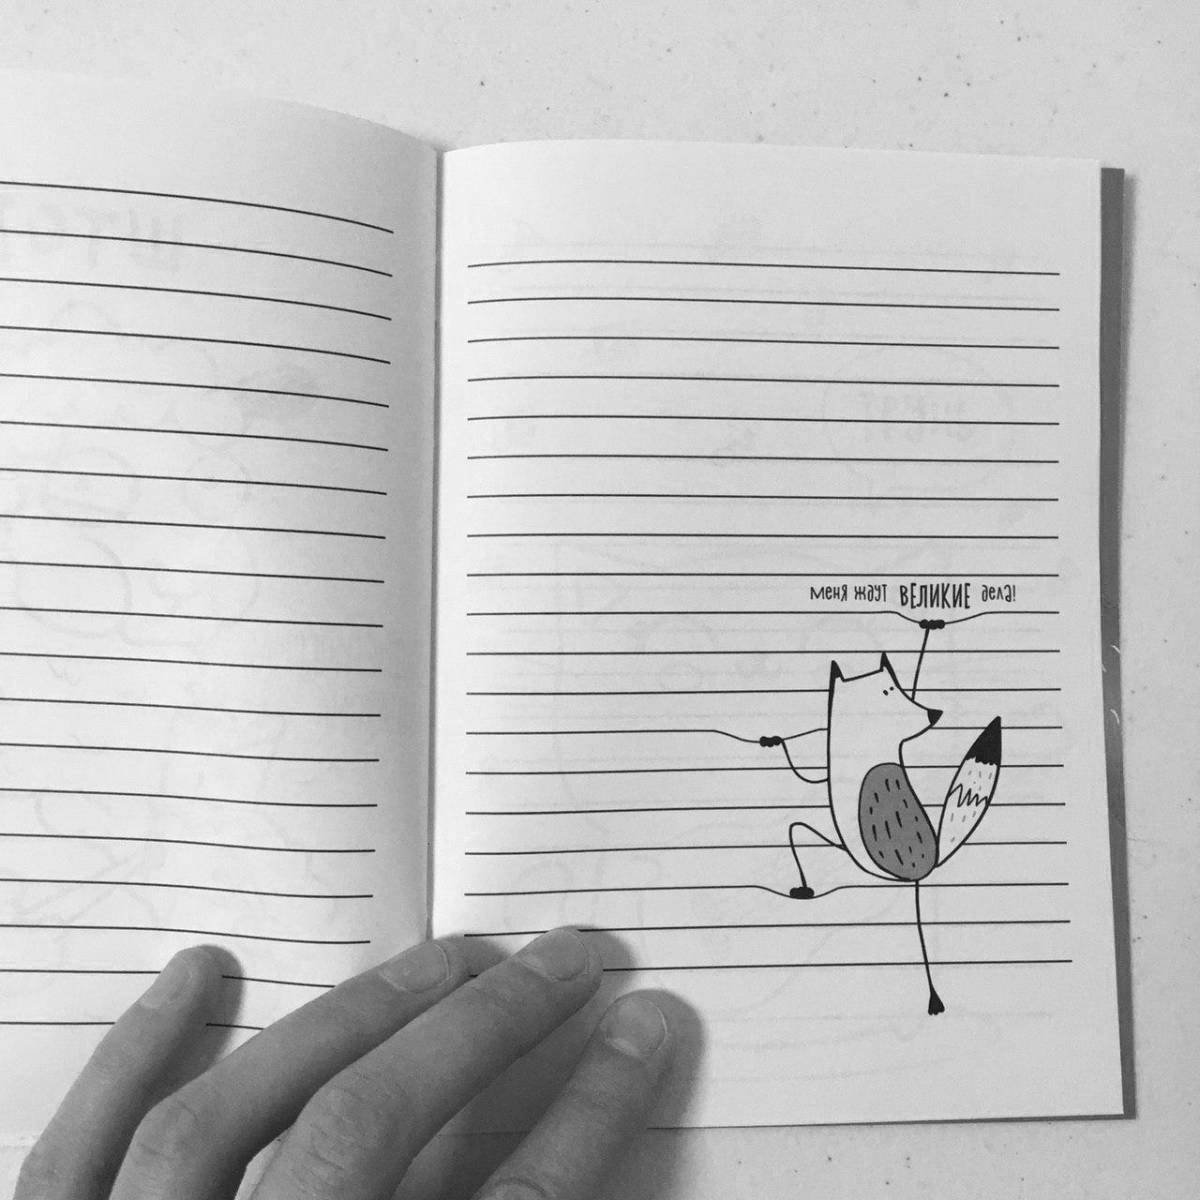 меня ждут ВЕЛИКИЕ дела!